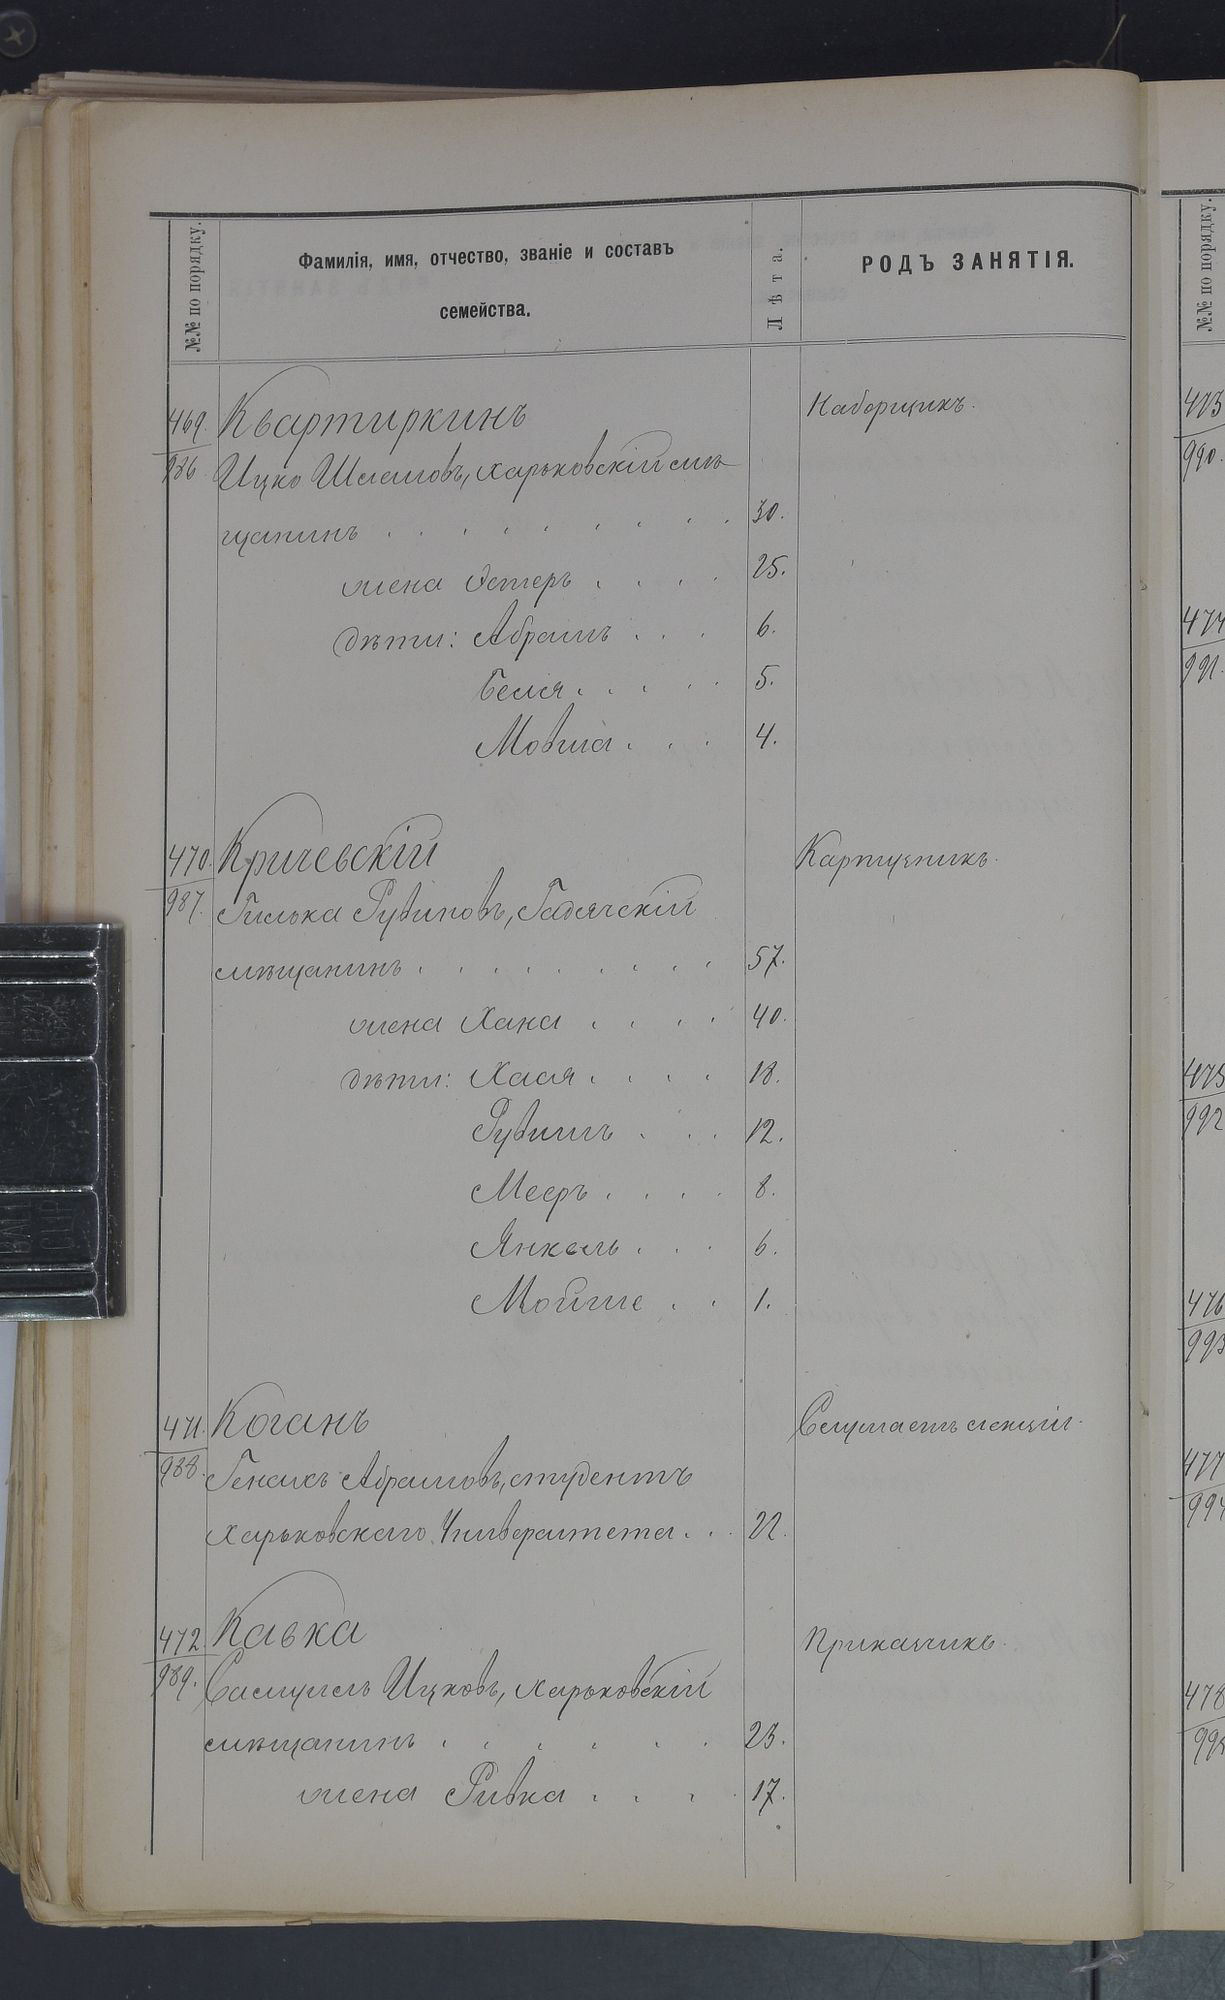 №№ по порядку.
Фамилія, имя, отчество, званіе и составъ
семейства.
Лѣта.
РОДЪ ЗАНЯТІЯ.
469. Квартиркинъ Наборщикъ.
986. Ицко Шлемовъ, харьковскій мѣ-
щанинъ . . . . . . . . . 30.
жена Эстеръ . . . . 25.
дѣти: Абрамъ . . . 6.
Бейля . . . . . 5.
Мовша . . . 4.
470. Кричевскій Картузникъ.
987. Гилька Рувиновъ, Гадячскій
мѣщанинъ . . . . . . . . . 57.
жена Хана . . . . 40.
дѣти: Хася . . . . 18.
Рувимъ . . . 12.
Мееръ . . . . 8.
Янкель . . . 6.
Мойше . . 1.
471. Коганъ Слушаетъ лекціи.
988. Генихъ Абрамовъ, студентъ
Харьковскаго Университета . . 22.
472. Кавка Приказчикъ.
989. Самуилъ Ицковъ, харьковскій
мѣщанинъ . . . . . . . 23.
жена Ривка . . . . 17.
№№ по порядку.
473
990.
474
991.
475
992
476
993
477
994
478